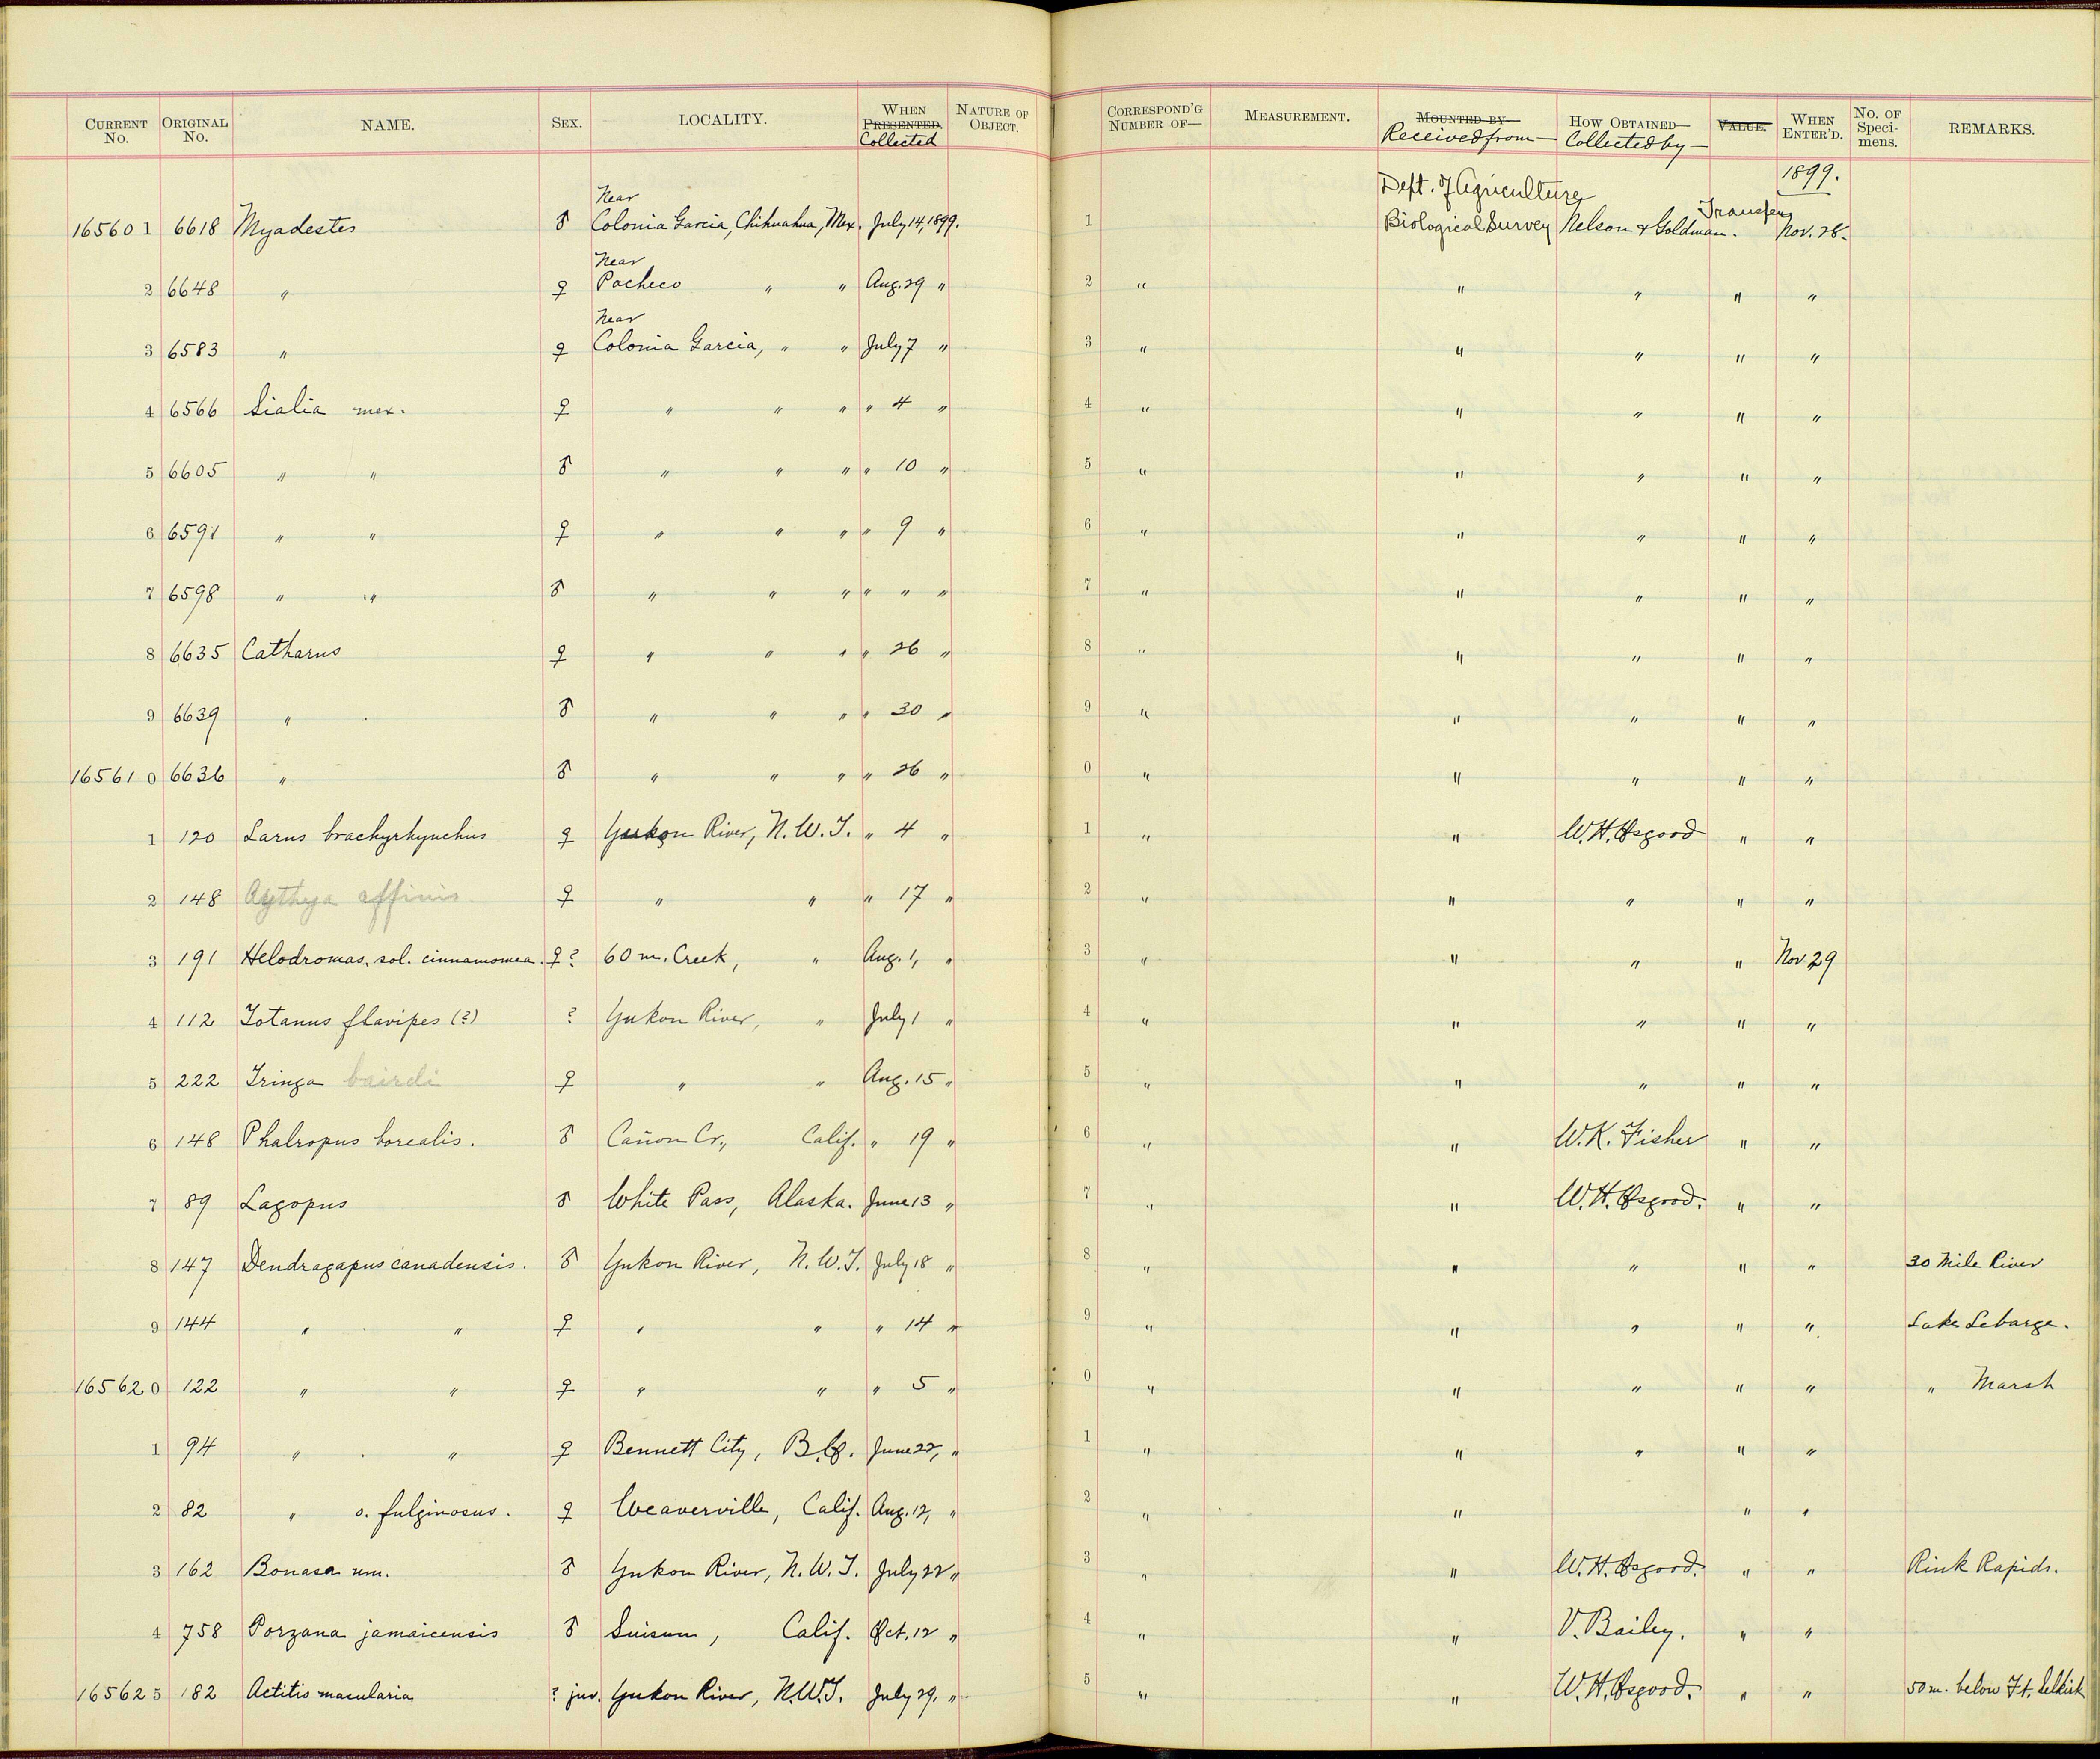 CURRENT No. ORIGINAL No. NAME. SEX. LOCALITY. WHEN PRESENTED. Collected NATURE OF OBJECT. CORRESPOND'G NUMBER OF— MEASUREMENT. MOUNTED BY— Received from— HOW OBTAINED— Collected by— VALUE. WHEN ENTER'D. No. OF Specimens. REMARKS.
Near Dept. of Agriculture 1899.
165601 6618 Myadestes ♂ Colonia Garcia, Chihuahua, Mex. July 14, 1899. 1 Biological Survey Nelson & Goldman. Transfer Nov. 28.
Near
2 6648 " ♀ Pacheco " " Aug. 29 " 2 " " " " "
Near
3 6583 " ♀ Colonia Garcia, " " July 7 " 3 " " " " "
4 6566 Sialia mex. ♀ " " " " 4 " 4 " " " " "
5 6605 " " ♂ " " " " 10 " 5 " " " " "
6 6591 " " ♀ " " " " 9 " 6 " " " " "
7 6598 " " ♂ " " " " " " 7 " " " " "
8 6635 Catharus ♀ " " " " 26 " 8 " " " " "
9 6639 " ♂ " " " " 30 " 9 " " " " "
165610 6636 " ♂ " " " " 26 " 0 " " " " "
1 120 Larus brachyrhynchus ♀ Yukon River, N.W.T. " 4 " 1 " " W.H. Osgood " "
2 148 Aythya affinis ♀ " " " 17 " 2 " " " " "
3 191 Helodromas sol. cinnamomea. ♀? 60 m. Creek, " Aug. 1, " 3 " " " " Nov 29
4 112 Totanus flavipes (?) ? Yukon River, " July 1 " 4 " " " " "
5 222 Tringa bairdi ♀ " " Aug. 15 " 5 " " " " "
6 148 Phalropus borealis. ♂ Cañon Cr., Calif. " 19 " 6 " " W.K. Fisher " "
7 89 Lagopus ♂ White Pass, Alaska. June 13 " 7 " " W.H. Osgood. " "
8 147 Dendragapus canadensis. ♂ Yukon River, N.W.T. July 18 " 8 " " " " " 30 Mile River
9 144 " " ♀ " " " 14 " 9 " " " " " Lake Lebarge.
165620 122 " " ♀ " " " 5 " 0 " " " " " " Marsh
1 94 " " ♀ Bennett City, B.C. June 22, " 1 " " " " "
2 82 " o. fulginosus. ♀ Weaverville, Calif. Aug. 12, " 2 " " " "
3 162 Bonasa um. ♂ Yukon River, N.W.T. July 22 " 3 " " W.H. Osgood. " " Rink Rapids.
4 758 Porzana jamaicensis ♂ Suisun, Calif. Oct. 12 " 4 " " V. Bailey. " "
165625 182 Actitis macularia ? juv. Yukon River, N.W.T. July 29, " 5 " " W.H. Osgood. " " 50 m. below Ft. Selkirk